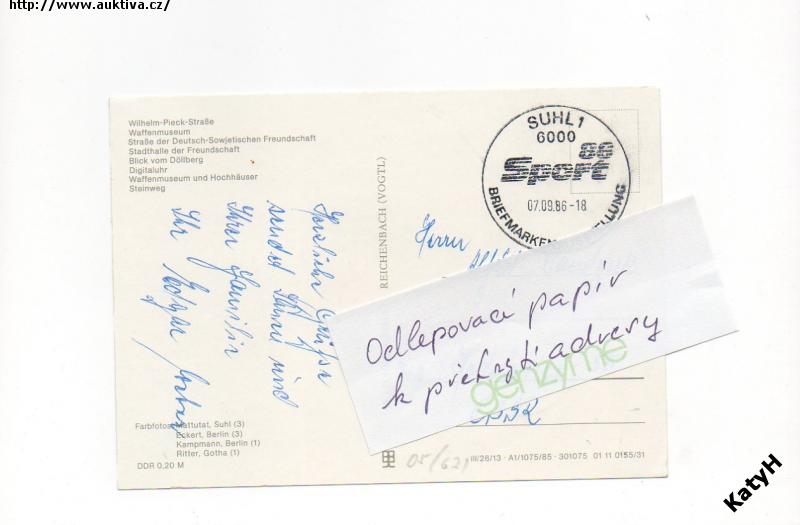 http://www.auktiva.cz/
Wilhelm-Pieck-Straße
Waffenmuseum
Straße der Deutsch-Sowjetischen Freundschaft
Stadthalle der Freundschaft
Blick vom Döllberg
Digitaluhr
Waffenmuseum und Hochhäuser
Steinweg
SUHL 1
6000
88
Sport
07.09.86-18
BRIEFMARKEN LLUNG
REICHENBACH (VOGTL)
Herzliche Grüße
sendet Ihnen und
Ihrer Familie
Ihr
Herrn
Odlepovací papír
k překrytí adresy
genzyme
Farbfotos: Mattutat, Suhl (3)
Eckert, Berlin (3)
Kampmann, Berlin (1)
Ritter, Gotha (1)
DDR 0,20 M
05/621
III/26/13 · A1/1075/85 · 301075 01 11 0155/31
KatyH